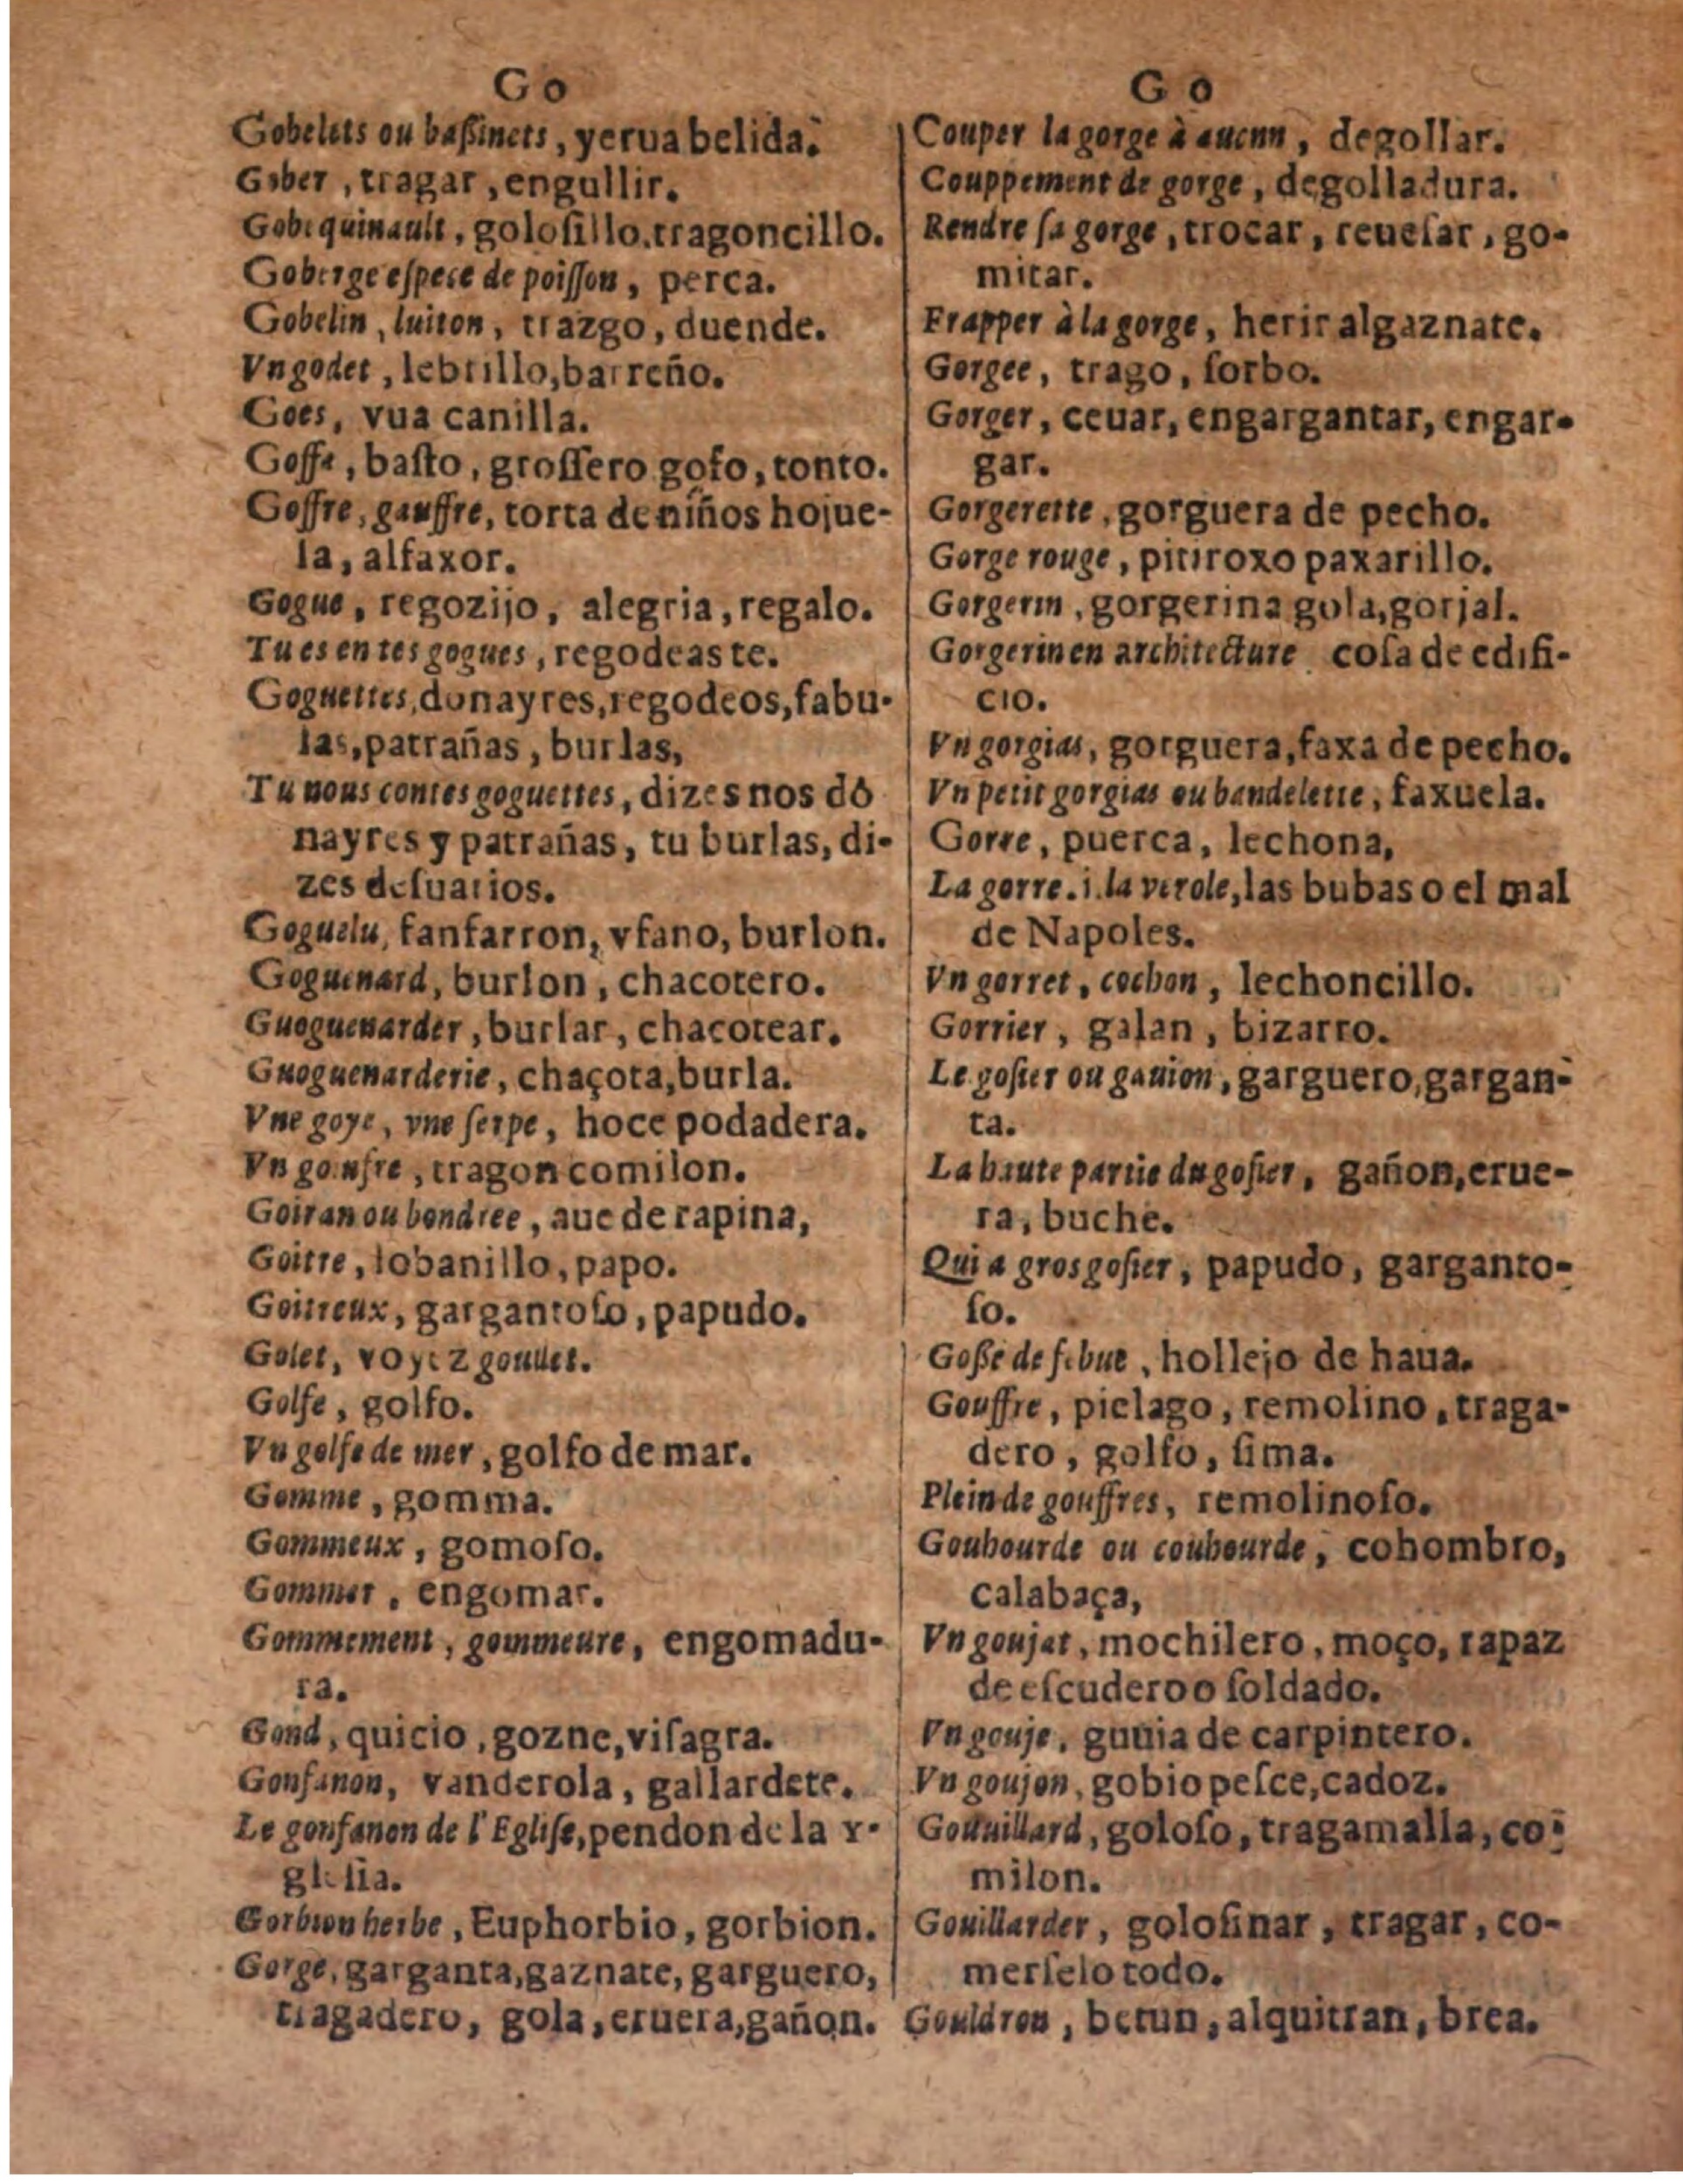 Go
Gobelets ou baſſinets, yerua belida.
Gober, tragar, engullir.
Gobequinault, goloſillo, tragoncillo.
Goberge eſpece de poiſſon, perca.
Gobelin, luiton, trazgo, duende.
Vn godet, lebrillo, barreño.
Goes, vua canilla.
Goffe, baſto, groſſero gofo, tonto.
Goffre, gauffre, torta de niños hojue-
la, alfaxor.
Gogue, regozijo, alegria, regalo.
Tu es en tes gogues, regodeas te.
Goguettes, donayres, regodeos, fabu-
las, patrañas, burlas,
Tu nous contes goguettes, dizes nos dō
nayres y patrañas, tu burlas, di-
zes deſuarios.
Goguelu, fanfarron, vfano, burlon.
Goguenard, burlon, chacotero.
Guoguenarder, burlar, chacotear.
Guoguenarderie, chaçota, burla.
Vne goye, vne ſerpe, hoce podadera.
Vn goufre, tragon comilon.
Goiran ou bondree, aue de rapina,
Goitre, lobanillo, papo.
Goitreux, gargantoſo, papudo.
Golet, voyez goullet.
Golfe, golfo.
Vn golfe de mer, golfo de mar.
Gomme, gomma.
Gommeux, gomoſo.
Gommer, engomar.
Gommement, gommeure, engomadu-
ra.
Gond, quicio, gozne, viſagra.
Gonfanon, vanderola, gallardete.
Le gonfanon de l'Egliſe, pendon de la Y-
gleſia.
Gorbion herbe, Euphorbio, gorbion.
Gorge, garganta, gaznate, garguero,
tragadero, gola, eruera, gañon.
Go
Couper la gorge à aucun, degollar.
Couppement de gorge, degolladura.
Rendre ſa gorge, trocar, reueſar, go-
mitar.
Frapper à la gorge, herir al gaznate.
Gorgee, trago, ſorbo.
Gorger, ceuar, engargantar, engar-
gar.
Gorgerette, gorguera de pecho.
Gorge rouge, pitiroxo paxarillo.
Gorgerin, gorgerina gola, gorjal.
Gorgerin en architecture coſa de edifi-
cio.
Vn gorgias, gorguera, faxa de pecho.
Vn petit gorgias ou bandelette, faxuela.
Gorre, puerca, lechona,
La gorre. i. la verole, las bubas o el mal
de Napoles.
Vn gorret, cochon, lechoncillo.
Gorrier, galan, bizarro.
Le goſier ou gauion, garguero, gargan-
ta.
La haute partie du goſier, gañon, erue-
ra, buche.
Qui a gros goſier, papudo, garganto-
ſo.
Goſſe de febue, hollejo de haua.
Gouffre, pielago, remolino, traga-
dero, golfo, ſima.
Plein de gouffres, remolinoſo.
Gouhourde ou couhourde, cohombro,
calabaça,
Vn goujat, mochilero, moço, rapaz
de eſcudero o ſoldado.
Vn gouje, guuia de carpintero.
Vn goujon, gobio peſce, cadoz.
Gouuillard, goloſo, tragamalla, co-
milon.
Gouillarder, goloſinar, tragar, co-
merſelo todo.
Gouldron, betun, alquitran, brea.